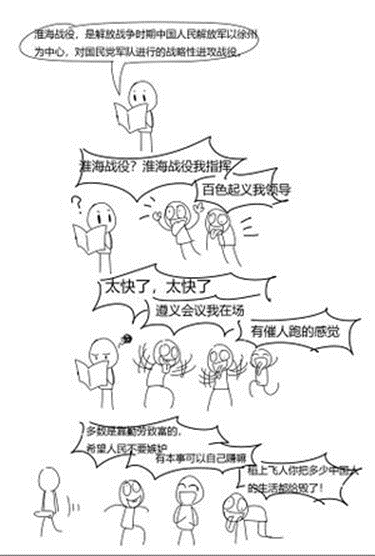 淮海战役，是解放战争时期中国人民解放军以徐州
为中心，对国民党军队进行的战略性进攻战役。
淮海战役？淮海战役我指挥
百色起义我领导
?
太快了，太快了
遵义会议我在场
有催人跑的感觉
多数是靠勤劳致富的，
希望人民不要嫉妒
有本事可以自己赚嘛
稻上飞人你把多少中国人
的生活都给毁了！